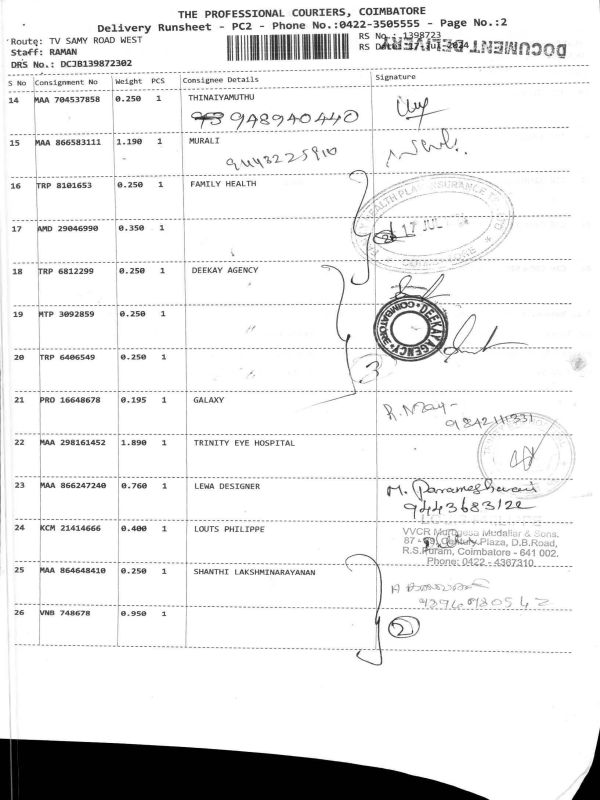 THE PROFESSIONAL COURIERS, COIMBATORE
Delivery Runsheet - PC2 - Phone No.:0422-3505555 - Page No.:2
Route: TV SAMY ROAD WEST
RS No : 1398723
Staff: RAMAN
RS Date: 17-Jul-2024
DOCUMENT DELIVERY
DRS No.: DCJB139872302
S No Consignment No Weight PCS Consignee Details Signature
14 MAA 704537858 0.250 1 THINAIYAMUTHU
948940440
15 MAA 866583111 1.190 1 MURALI
9443225910
16 TRP 8101653 0.250 1 FAMILY HEALTH
HEALTH PLAN INSURANCE
17 JUL
17 AMD 29046990 0.350 1
2
18 TRP 6812299 0.250 1 DEEKAY AGENCY
19 MTP 3092859 0.250 1
DEEKAY AGENCY COIMBATORE
20 TRP 6406549 0.250 1
3
21 PRO 16648678 0.195 1 GALAXY
R. May-
9842111331
22 MAA 298161452 1.890 1 TRINITY EYE HOSPITAL
23 MAA 866247240 0.760 1 LEWA DESIGNER
M. Parameshwari
9443683122
24 KCM 21414666 0.400 1 LOUTS PHILIPPE
VVCR Murugesa Mudaliar & Sons.
87 - Century Plaza, D.B.Road,
R.S.Puram, Coimbatore - 641 002.
Phone: 0422 - 4367310
25 MAA 864648410 0.250 1 SHANTHI LAKSHMINARAYANAN
26 VNB 748678 0.950 1
2